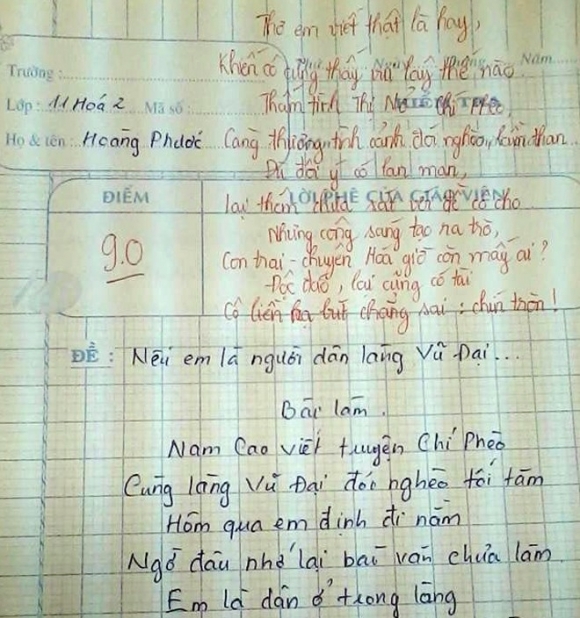 Thơ em viết thật là hay,
Khiến cô cũng thấy vui lây thế nào
Trường: Năm
Lớp: 11 Hoá 2 Mã số: Thấm tình Thị Nở Chí Phèo,
Họ & tên: Hoàng Phước Càng thương tình cảnh đói nghèo, lầm than
Dù đôi ý có lan man,
ĐIỂM LỜI PHÊ CỦA GIÁO VIÊN
Lại thêm chưa sát với đề cô cho
Nhưng công sáng tạo ra trò,
9.0 Con trai - chuyên Hoá giờ còn mấy ai?
Độc đáo, lại cũng có tài
Cô liền hạ bút chẳng sai: chín tròn!
ĐỀ: Nếu em là người dân làng Vũ Đại...
Bài làm.
Nam Cao viết truyện Chí Phèo
Cùng làng Vũ Đại đói nghèo tối tăm
Hôm qua em định đi nằm
Ngờ đâu nhớ lại bài văn chưa làm
Em là dân ở trong làng